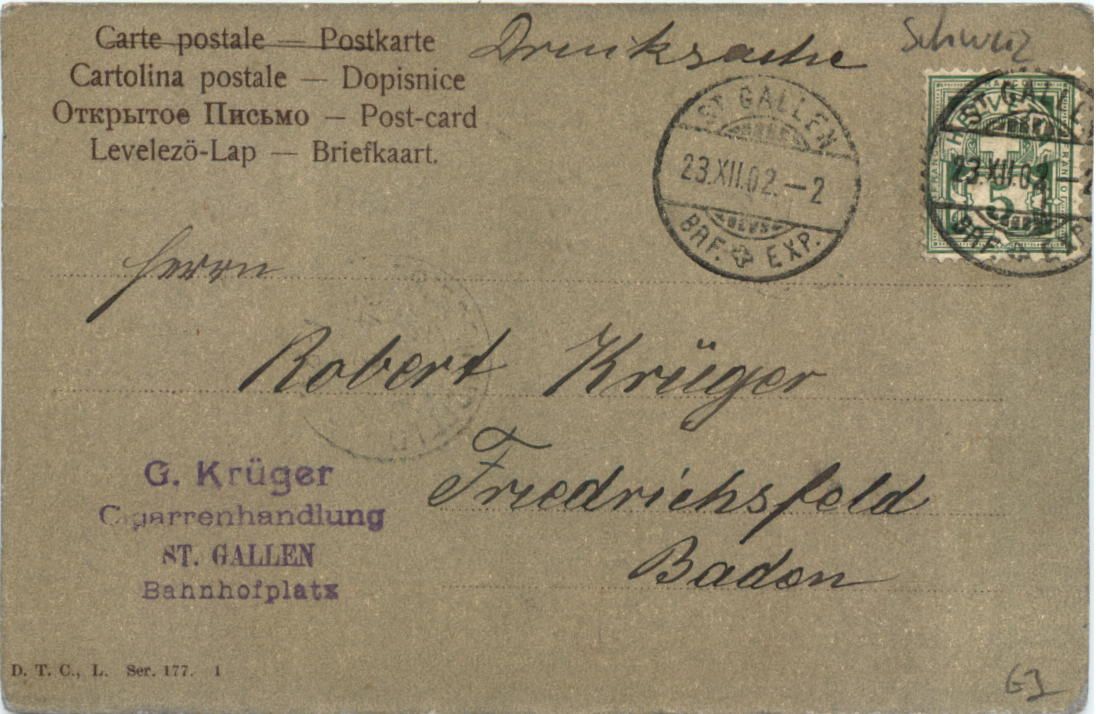 Carte postale — Postkarte
Cartolina postale — Dopisnice
Открытое Письмо — Post-card
Levelezö-Lap — Briefkaart.
Drucksache
Schweiz
ST. GALLEN
23.XII.02.–2
BRF. EXP.
ST. GALLEN
23.XII.02.–2
BRF. EXP.
HELVETIA
FRANCO
5
Herrn
Robert Krüger
Friedrichsfeld
Baden
G. Krüger
Cigarrenhandlung
ST. GALLEN
Bahnhofplatz
D. T. C., L. Ser. 177. 1